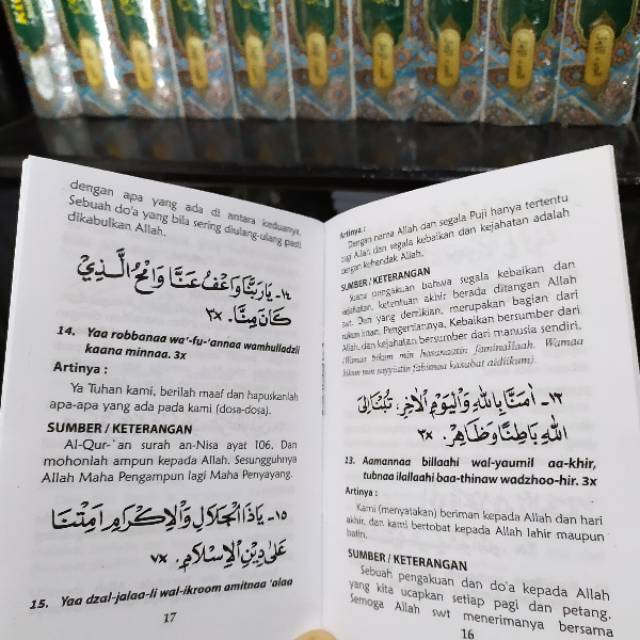 Artinya :
Dengan nama Allah dan segala Puji hanya tertentu
bagi Allah dan segala kebaikan dan kejahatan adalah
dengan kehendak Allah.
SUMBER / KETERANGAN
Suatu pengakuan bahwa segala kebaikan dan
kejahatan, ketentuan akhir berada ditangan Allah
swt. Dan yang demikian, merupakan bagian dari
rukun iman. Pengertiannya, Kebaikan bersumber dari
Allah, dan kejahatan bersumber dari manusia sendiri.
(Wamaa bikum min hasanaatin faminallaah. Wamaa
bikum min sayyiatin fabimaa kasabat aidiikum).
١٣- اٰمَنَّا بِاللّٰهِ وَالْيَوْمِ الْاٰخِرِ، تُبْنَا اِلَى
اللّٰهِ بَاطِنًا وَظَاهِرْ. ٣x
13. Aamannaa billaahi wal-yaumil aa-khir,
tubnaa ilallaahi baa-thinaw wadzhoo-hir. 3x
Artinya :
Kami (menyatakan) beriman kepada Allah dan hari
akhir, dan kami bertobat kepada Allah lahir maupun
batin.
SUMBER / KETERANGAN
Sebuah pengakuan dan do'a kepada Allah
yang kita ucapkan setiap pagi dan petang.
Semoga Allah swt menerimanya bersama
16
dengan apa yang ada di antara keduanya.
Sebuah do'a yang bila sering diulang-ulang pasti
dikabulkan Allah.
١٤- يَارَبَّنَا وَاعْفُ عَنَّا وَامْحُ الَّذِيْ
كَانَ مِنَّا. ٣x
14. Yaa robbanaa wa'-fu-'annaa wamhulladzii
kaana minnaa. 3x
Artinya :
Ya Tuhan kami, berilah maaf dan hapuskanlah
apa-apa yang ada pada kami (dosa-dosa).
SUMBER / KETERANGAN
Al-Qur-`an surah an-Nisa ayat 106, Dan
mohonlah ampun kepada Allah. Sesungguhnya
Allah Maha Pengampun lagi Maha Penyayang.
١٥- يَاذَا الْجَلَالِ وَالْاِكْرَامِ اَمِتْنَا
عَلٰى دِيْنِ الْاِسْلَامِ. ٧x
15. Yaa dzal-jalaa-li wal-ikroom amitnaa 'alaa
17